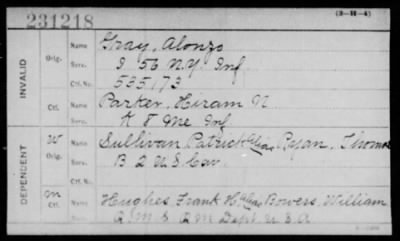 231218
(3-H-4)
INVALID
Orig.
Name Gray, Alonzo
Serv. I 56 N.Y. Inf
Ctf. No. 535173
Ctf.
Name Parker, Hiram N.
Serv. K 8 Me Inf
DEPENDENT
W
Orig.
Name Sullivan Patrick Alias Ryan, Thomas
Serv. B 2 U S Cav.
Ctf. No.
M
Ctf.
Name Hughes Frank H Alias Bowers, William
Serv. Q M Dept U.S.A